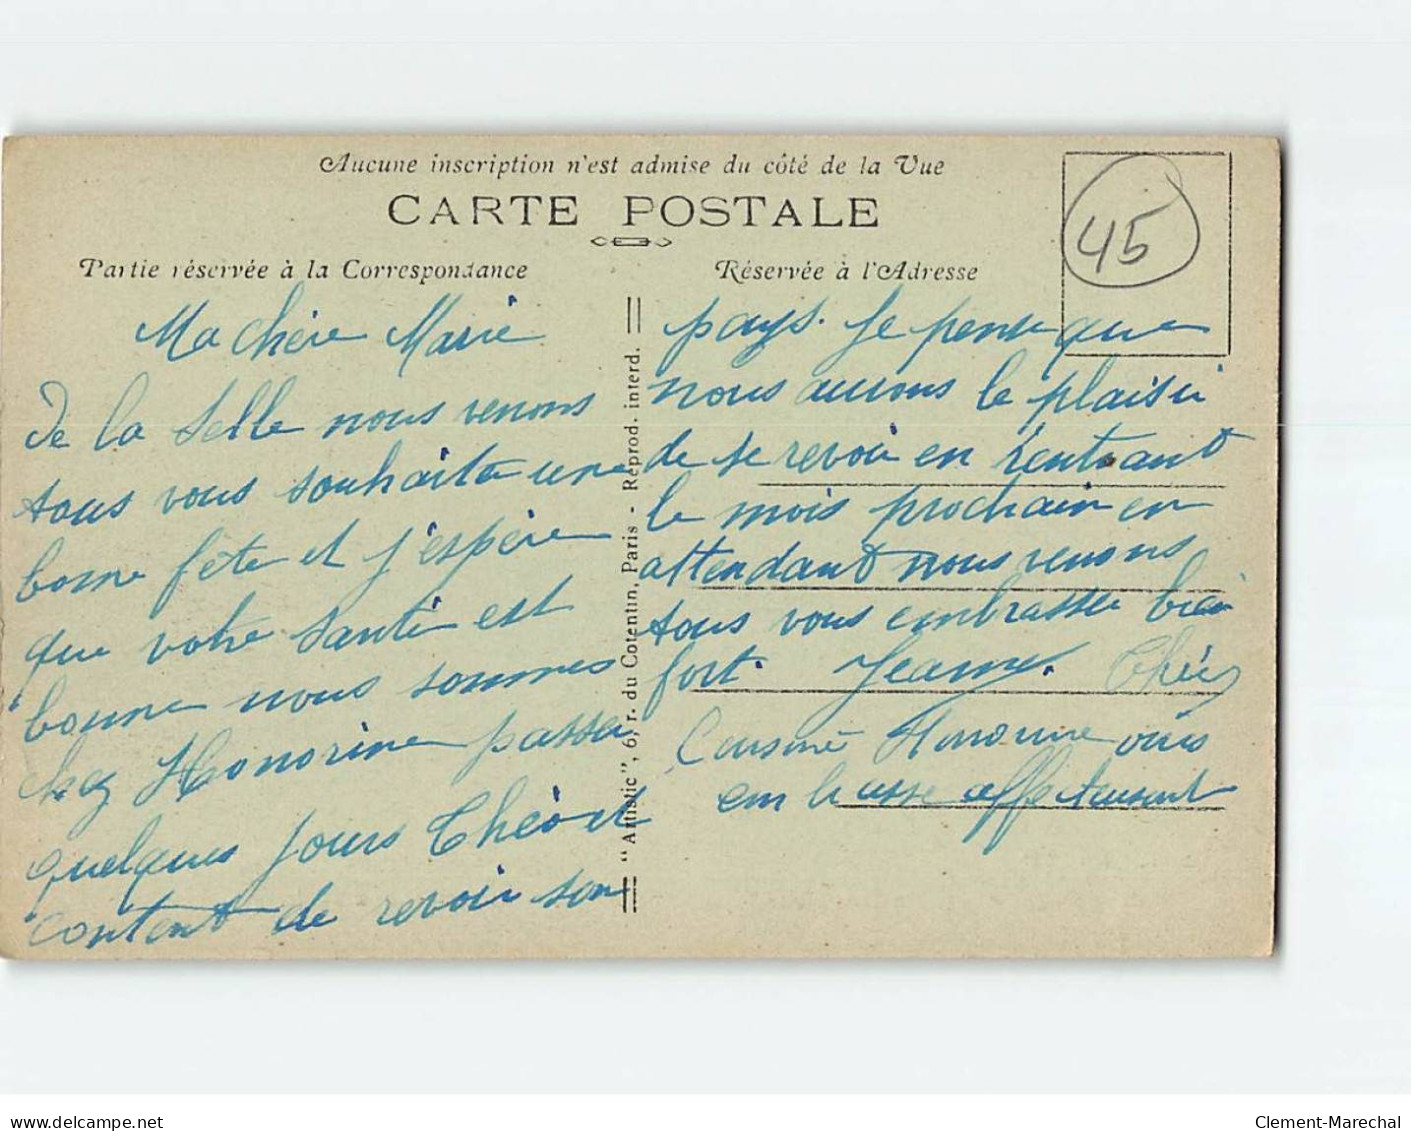 Aucune inscription n'est admise du côté de la Vue
CARTE POSTALE
Partie réservée à la Correspondance
Réservée à l'Adresse
45
Ma chère Marie
De la Selle nous venons
tous vous souhaiter une
bonne fête et j'espère
que votre santé est
bonne nous sommes
chez Honorine passer
quelques jours Théo est
content de revoir son
"Artistic", 6, r. du Cotentin, Paris - Réprod. interd.
pays. Je pense que
nous aurons le plaisir
de se revoir en rentrant
le mois prochain en
attendant nous venons
tous vous embrasser bien
fort. Jeanne. Théo
Cousine Honorine vous
embrasse affectueusement
www.delcampe.net
Clement-Marechal